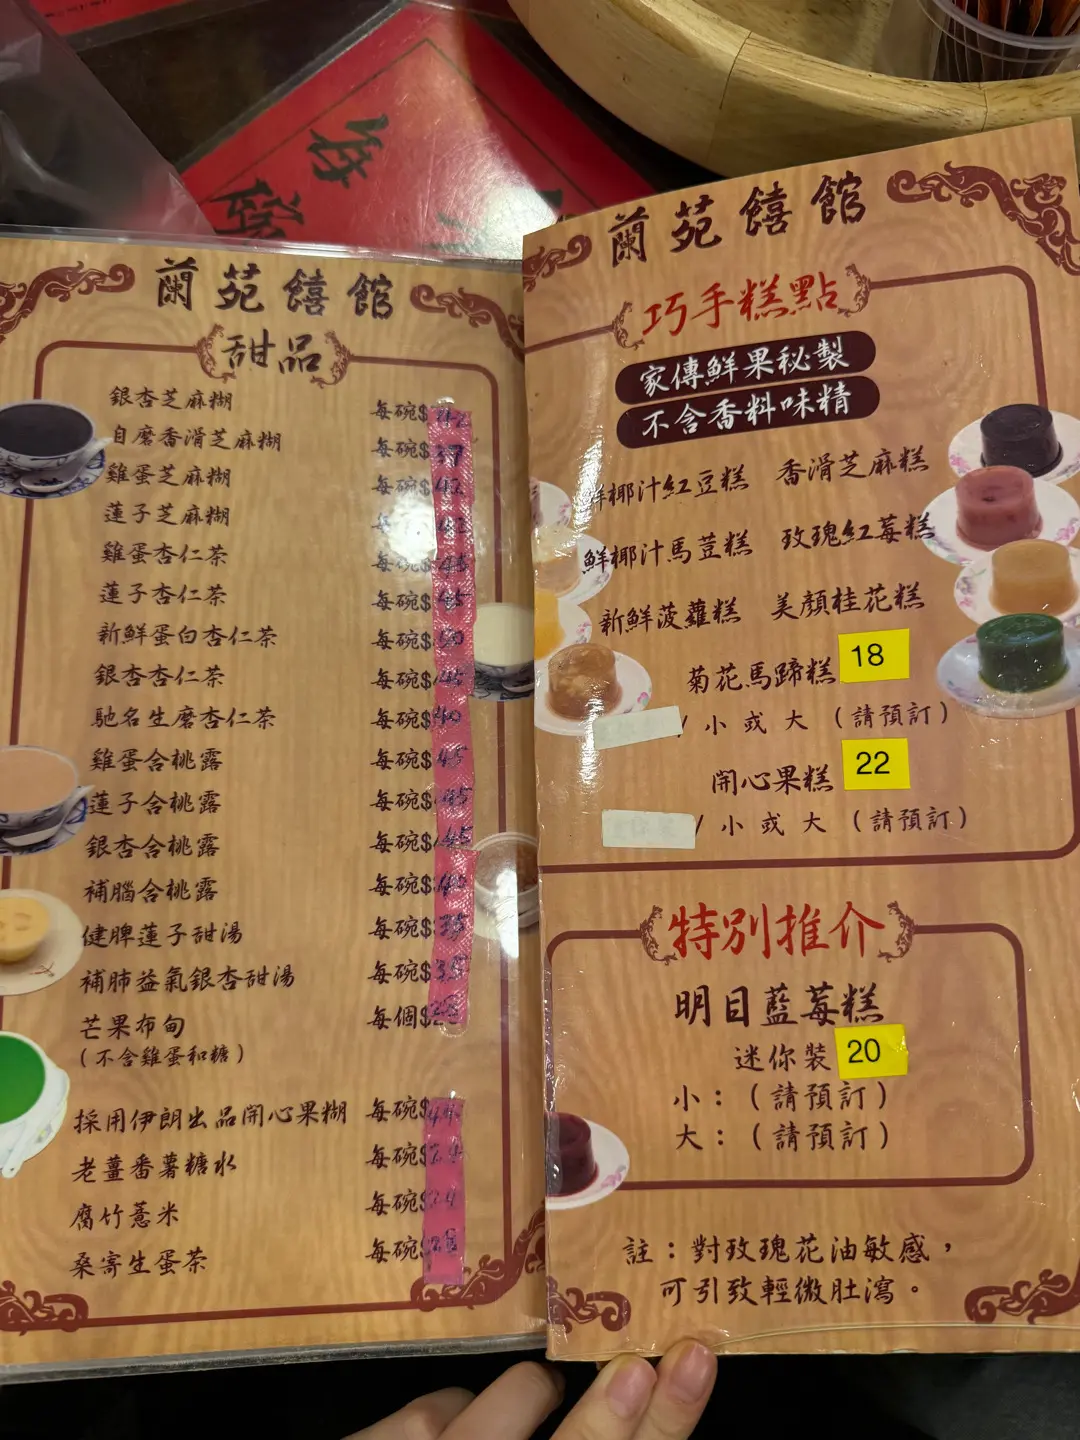 蘭苑饎館
甜品
銀杏芝麻糊 每碗$42
自磨香滑芝麻糊 每碗$37
雞蛋芝麻糊 每碗$42
蓮子芝麻糊
雞蛋杏仁茶 每碗$45
蓮子杏仁茶 每碗$45
新鮮蛋白杏仁茶 每碗$50
銀杏杏仁茶 每碗$45
馳名生磨杏仁茶 每碗$40
雞蛋合桃露 每碗$45
蓮子合桃露 每碗$45
銀杏合桃露 每碗$45
補腦合桃露 每碗$40
健脾蓮子甜湯 每碗$35
補肺益氣銀杏甜湯 每碗$35
芒果布甸 每個$
(不含雞蛋和糖)
採用伊朗出品開心果糊 每碗$44
老薑番薯糖水 每碗$24
腐竹薏米 每碗$24
桑寄生蛋茶 每碗$28
蘭苑饎館
巧手糕點
家傳鮮果秘製
不含香料味精
鮮椰汁紅豆糕 香滑芝麻糕
鮮椰汁馬荳糕 玫瑰紅莓糕
新鮮菠蘿糕 美顏桂花糕
菊花馬蹄糕 18
/ 小 或 大 (請預訂)
開心果糕 22
/ 小 或 大 (請預訂)
特別推介
明目藍莓糕
迷你裝 20
小：(請預訂)
大：(請預訂)
註：對玫瑰花油敏感，
可引致輕微肚瀉。